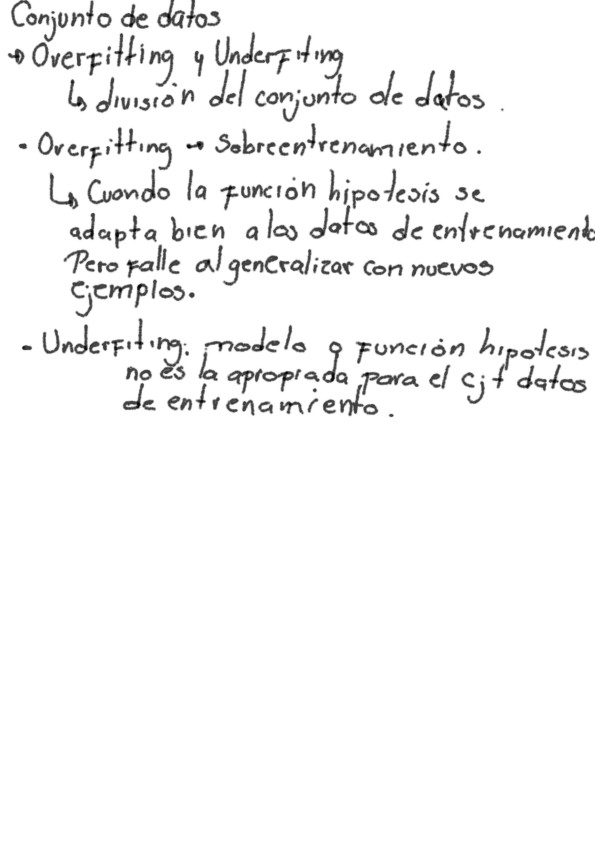 Conjunto de datos
→ Overfitting y Underfiting
↳ división del conjunto de datos.
- Overfitting → Sobreentrenamiento.
↳ Cuando la función hipotesis se
adapta bien a los datos de entrenamiento
Pero falle al generalizar con nuevos
ejemplos.
- Underfiting: modelo o función hipotesis
no es la apropiada para el cjt datos
de entrenamiento.